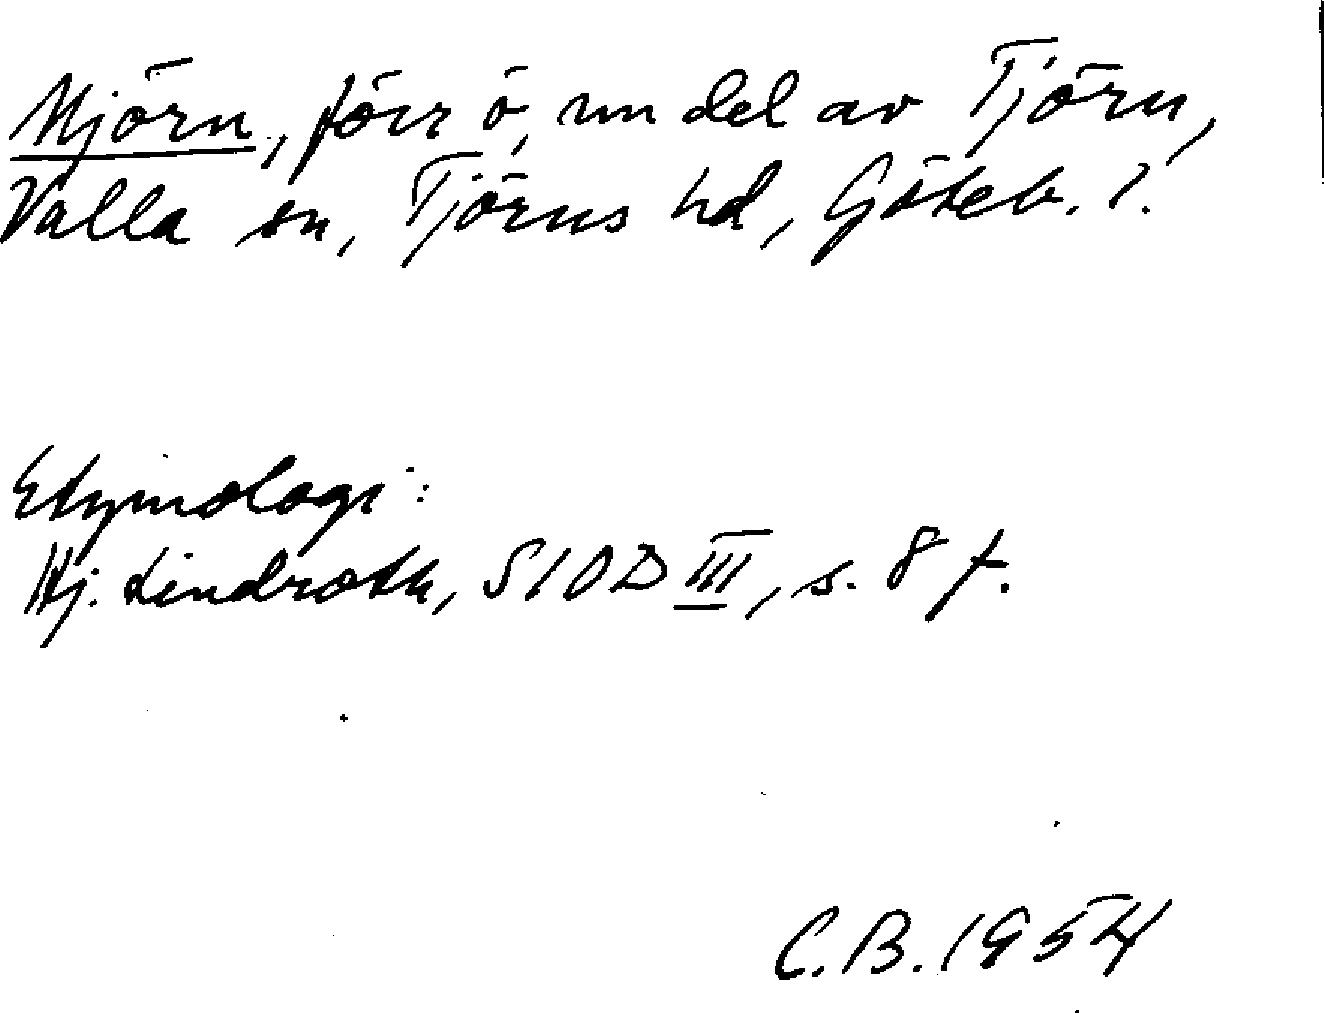 Mjörn, förr ö, nu del av Tjörn,
Valla sn, Tjörns hd, Göteb. l.
Etymologi:
Hj. Lindroth, SIOD III, s. 8 f.
C.B. 1954